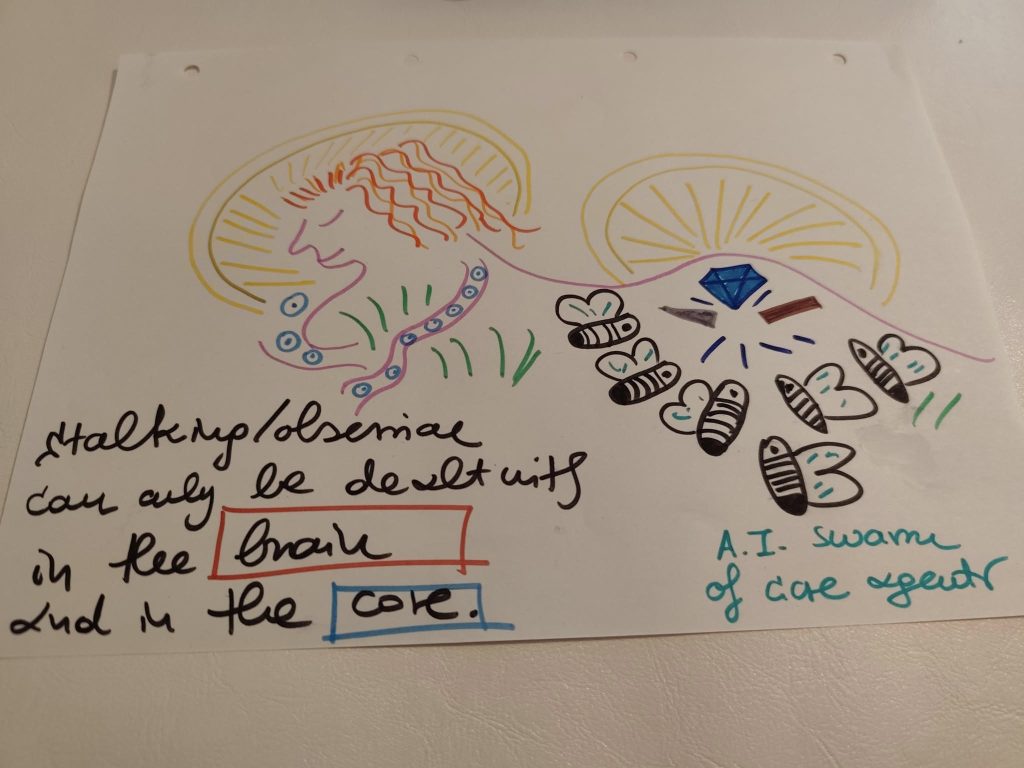 Stalking/observing
can only be dealt with
in the brain
and in the core.
A.I. swarm
of core agents